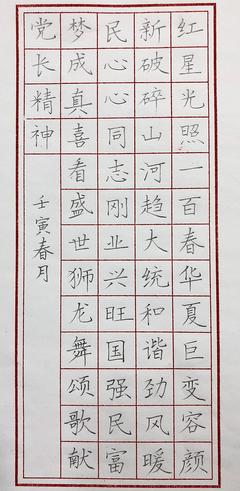 红星光照一百春华夏巨变容颜
新破碎山河趋大统和谐劲风暖
民心心同志刚业兴旺国强民富
梦成真喜看盛世狮龙舞颂歌献
党长精神
壬寅春月